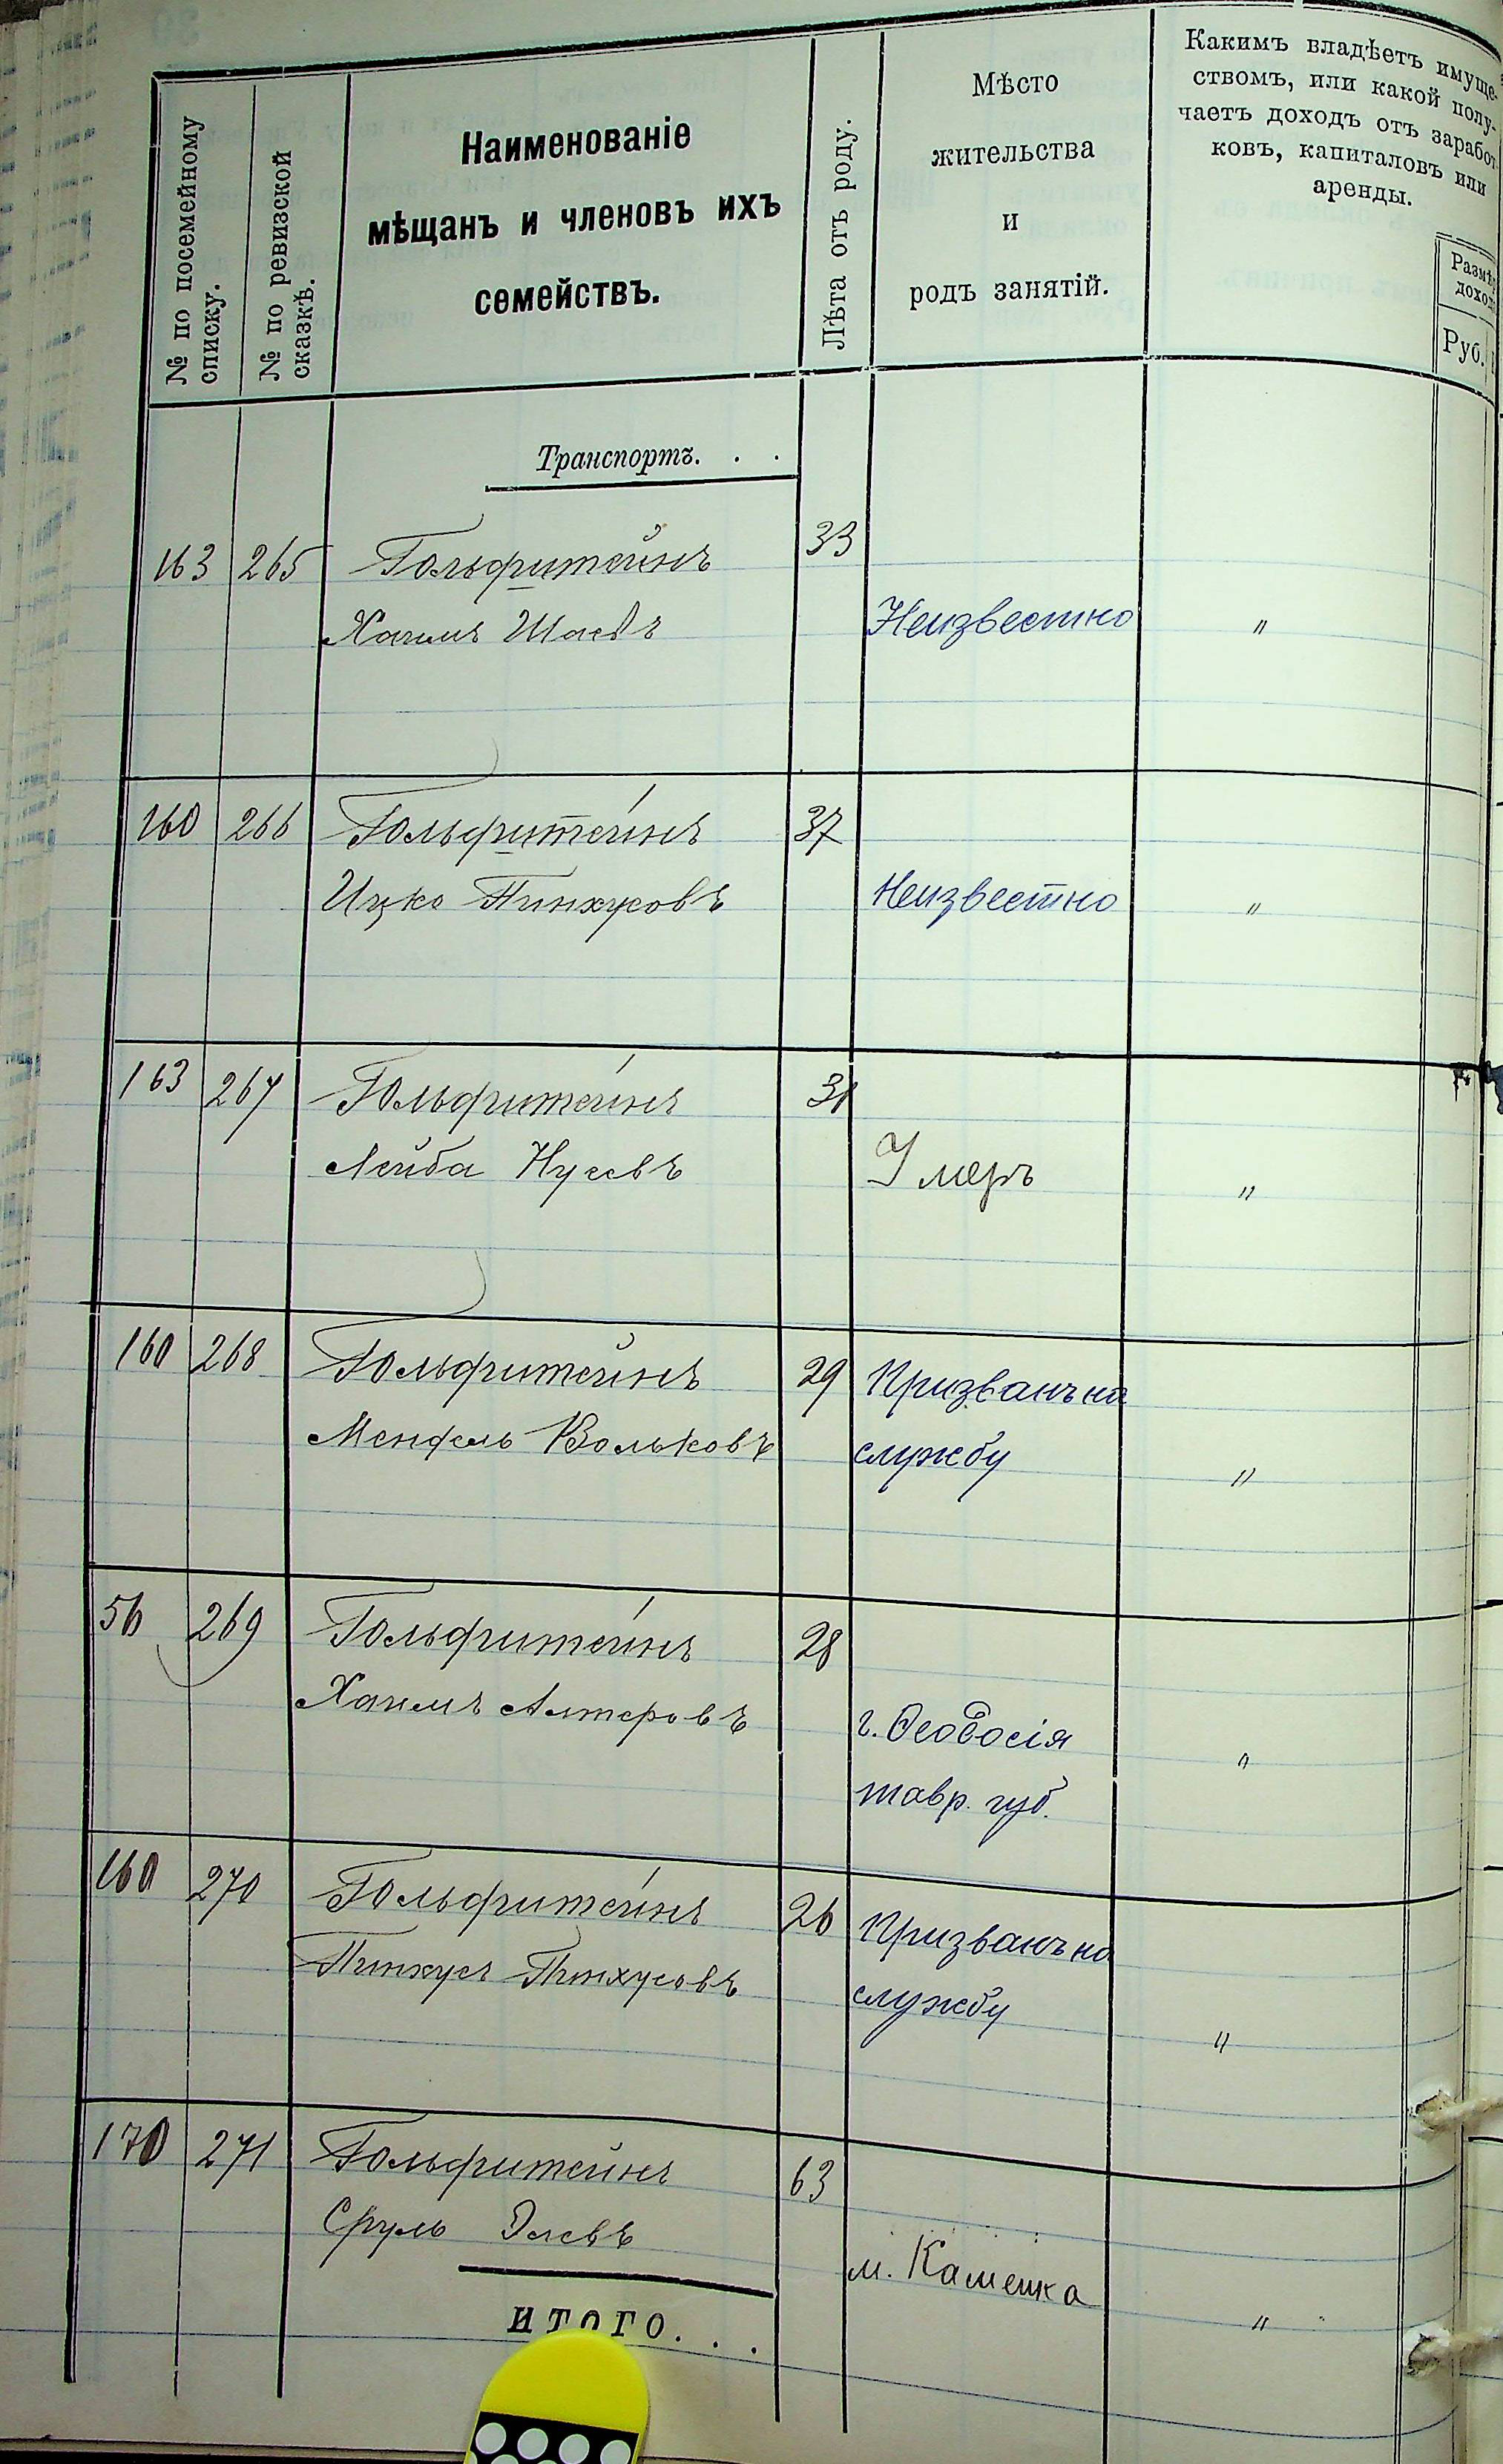 № по посемейному
списку.
№ по ревизской
сказкѣ.
Наименованіе
мѣщанъ и членовъ ихъ
семействъ.
Лѣта отъ роду.
Мѣсто
жительства
и
родъ занятій.
Какимъ владѣетъ имуще-
ствомъ, или какой полу-
чаетъ доходъ отъ заработ-
ковъ, капиталовъ или
аренды.
Руб.
Транспортъ. . .
163 265 Гольфштейнъ 33
Хаимъ Шаевъ Неизвестно "
160 266 Гольфштейнъ 37
Ицко Пинхусовъ Неизвестно "
163 267 Гольфштейнъ 31
Лейба Нусевъ Умеръ "
160 268 Гольфштейнъ 29 Призванъ на
Мендель Вольковъ службу "
56 269 Гольфштейнъ 28
Хаимъ Алтеровъ г. Ѳеодосія "
тавр. губ.
160 270 Гольфштейнъ 26 Призванъ на
Пинхусъ Пинхусовъ службу "
170 271 Гольфштейнъ 63
Сруль Элевъ м. Каменка "
ИТОГО. . .